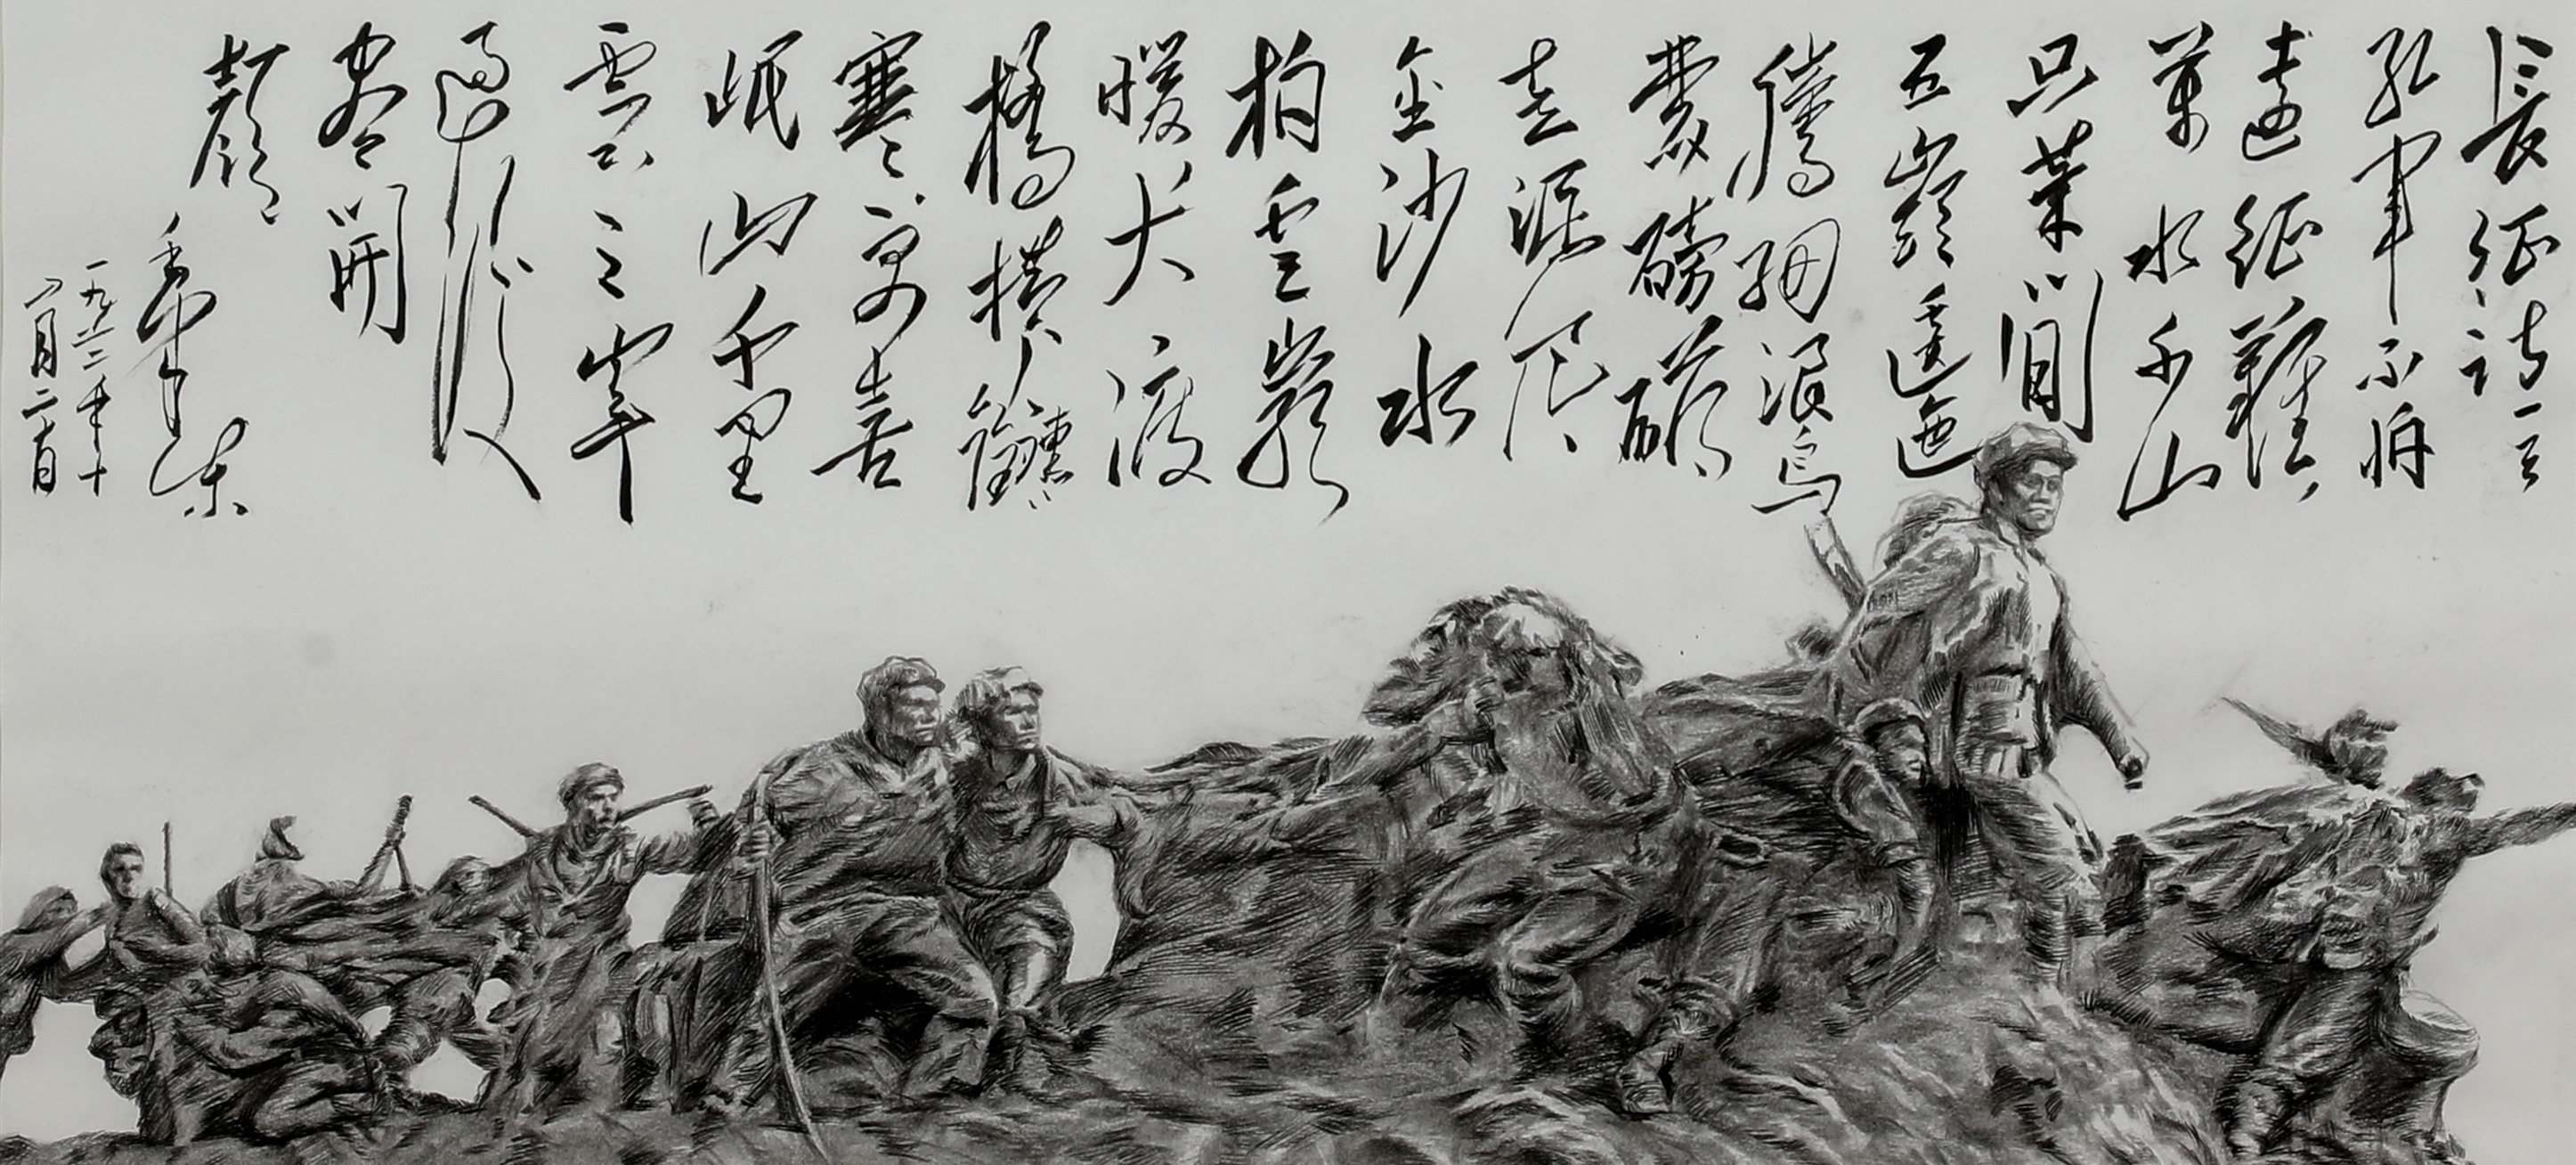 長征詩一首
紅軍不怕
遠征難
萬水千山
只等閒
五嶺逶迤
騰細浪烏
蒙磅礴
走泥丸
金沙水
拍雲崖
暖大渡
橋橫鐵索
寒更喜
岷山千里
雪三軍
過後
盡開
顏
毛澤東
一九六二年十